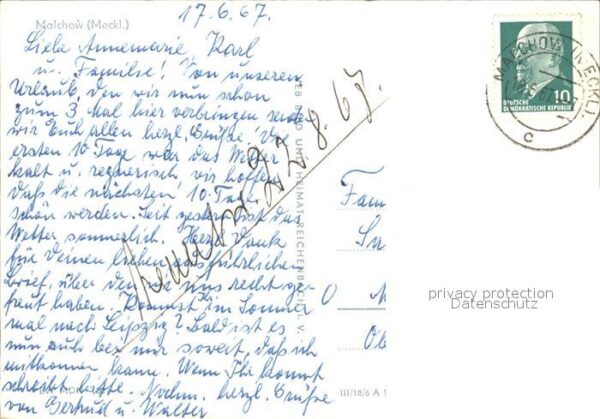 17.6.67.
Malchow (Meckl.)
Liebe Annemarie Karl
u. Familie! Von unserem
Urlaub, den wir nun schon
zum 3 Mal hier verbringen senden
wir Euch allen herzl. Grüße. Die
ersten 10 Tage war das Wetter
kalt u. regnerisch, wir hoffen
daß die nächsten 10 Tage
schön werden. Seit gestern ist das
Wetter sommerlich. Herzl. Dank
für Deinen lieben ausführlichen
Brief, über den wir uns recht ge-
freut haben. Kommst Du im Sommer
mal nach Leipzig? Bald ist es
nun auch bei mir soweit, daß ich
mitkommen kann. Wenn Ihr kommt
schreibt bitte. Nochm. herzl. Grüße
von Gertrud u. Walter
22.8.67.
VEB BILD UND HEIMAT REICHENBACH I. V.
MALCHOW (MECKL)
c
10
DEUTSCHE
DEMOKRATISCHE REPUBLIK
Fam
O
Ob
III/18/6 A 1
privacy protection
Datenschutz